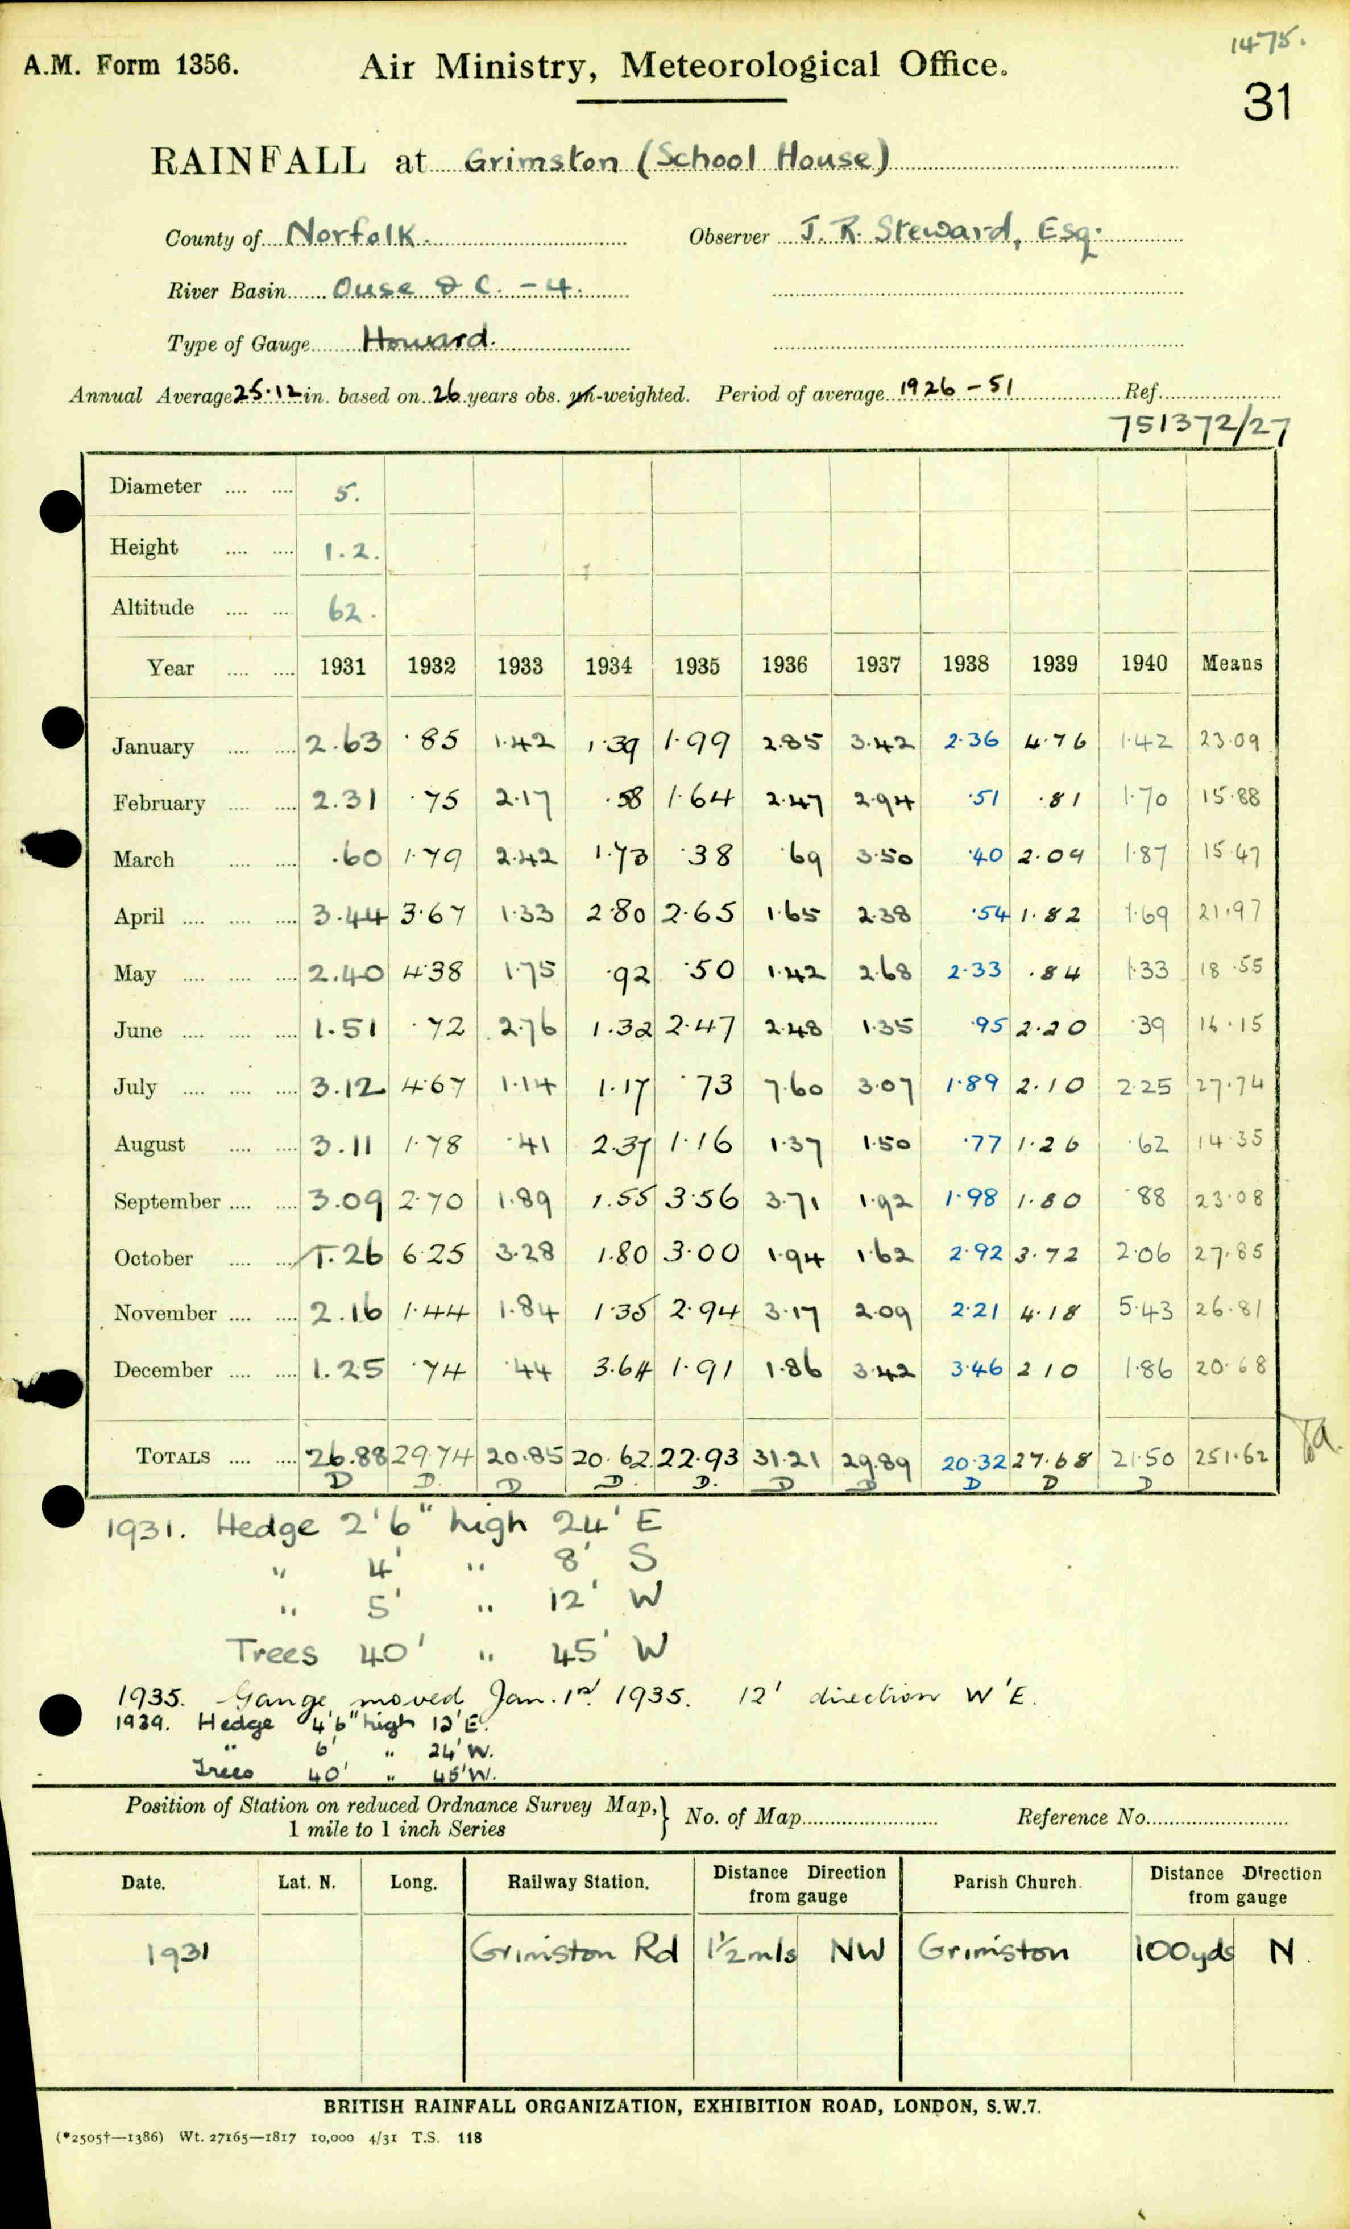 1475.
A.M. Form 1356. Air Ministry, Meteorological Office.
31
RAINFALL at Grimston (School House)
County of Norfolk. Observer J. R. Steward, Esq.
River Basin Ouse & C. - 4.
Type of Gauge Howard.
Annual Average 25.12 in. based on 26 years obs. un-weighted. Period of average 1926 - 51 Ref.
751372/27
Diameter .... .... 5.
Height .... .... 1.2.
Altitude .... .... 62.
Year .... .... 1931 1932 1933 1934 1935 1936 1937 1938 1939 1940 Means
January .... .... 2.63 .85 1.42 1.39 1.99 2.85 3.42 2.36 4.76 1.42 23.09
February .... .... 2.31 .75 2.17 .58 1.64 2.47 2.94 .51 .81 1.70 15.88
March .... .... .60 1.79 2.42 1.73 .38 .69 3.50 .40 2.09 1.87 15.47
April .... .... .... 3.44 3.67 1.33 2.80 2.65 1.65 2.38 .54 1.82 1.69 21.97
May .... .... .... 2.40 4.38 1.75 .92 .50 1.42 2.68 2.33 .84 1.33 18.55
June .... .... .... 1.51 .72 2.76 1.32 2.47 2.48 1.35 .95 2.20 .39 16.15
July .... .... .... 3.12 4.67 1.14 1.17 .73 7.60 3.07 1.89 2.10 2.25 27.74
August .... .... 3.11 1.78 .41 2.37 1.16 1.37 1.50 .77 1.26 .62 14.35
September .... .... 3.09 2.70 1.89 1.55 3.56 3.71 1.92 1.98 1.80 .88 23.08
October .... .... 1.26 6.25 3.28 1.80 3.00 1.94 1.62 2.92 3.72 2.06 27.85
November .... .... 2.16 1.44 1.84 1.35 2.94 3.17 2.09 2.21 4.18 5.43 26.81
December .... .... 1.25 .74 .44 3.64 1.91 1.86 3.42 3.46 2 10 1.86 20.68
TOTALS .... .... 26.88 29.74 20.85 20.62 22.93 31.21 29.89 20.32 27.68 21.50 251.62
D D. D D. D. D D D D D
1931. Hedge 2'6" high 24' E
" 4' " 8' S
" 5' " 12' W
Trees 40' " 45' W
1935. Gauge moved Jan. 1st 1935. 12' direction W'E.
1939. Hedge 4'6" high 12'E.
" 6' " 24'W.
Trees 40' " 45'W.
Position of Station on reduced Ordnance Survey Map,} No. of Map Reference No.
1 mile to 1 inch Series
Date. Lat. N. Long. Railway Station. Distance Direction from gauge Parish Church. Distance Direction from gauge
1931 Grimston Rd 1½ mls NW Grimston 100yds N.
BRITISH RAINFALL ORGANIZATION, EXHIBITION ROAD, LONDON, S.W.7.
(*2505†—1386) Wt. 27165—1817 10,000 4/31 T.S. 118